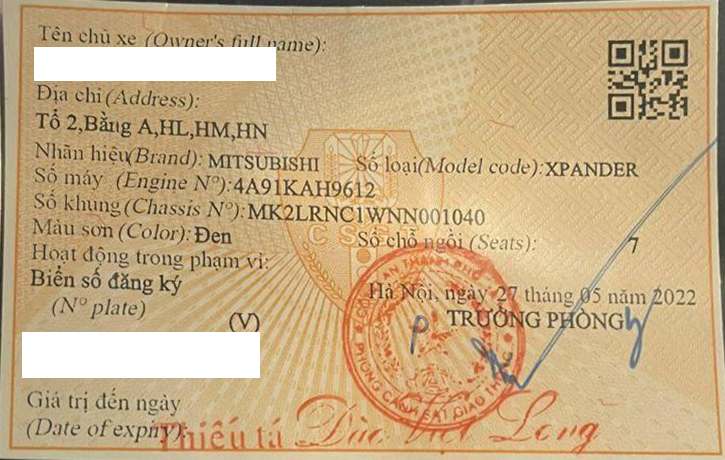 Tên chủ xe (Owner's full name):
Địa chỉ (Address):
Tổ 2,Bằng A,HL,HM,HN
Nhãn hiệu(Brand): MITSUBISHI Số loại(Model code):XPANDER
Số máy (Engine Nº):4A91KAH9612
Số khung(Chassis Nº):MK2LRNC1WNN001040
Màu sơn (Color):Đen Số chỗ ngồi (Seats): 7
Hoạt động trong phạm vi:
Biển số đăng ký
(Nº plate)
(V)
Hà Nội, ngày 27 tháng 05 năm 2022
TRƯỞNG PHÒNG
CÔNG AN THÀNH PHỐ
PHÒNG CẢNH SÁT GIAO THÔNG
Giá trị đến ngày
(Date of expiry):
Thiếu tá Đào Việt Long